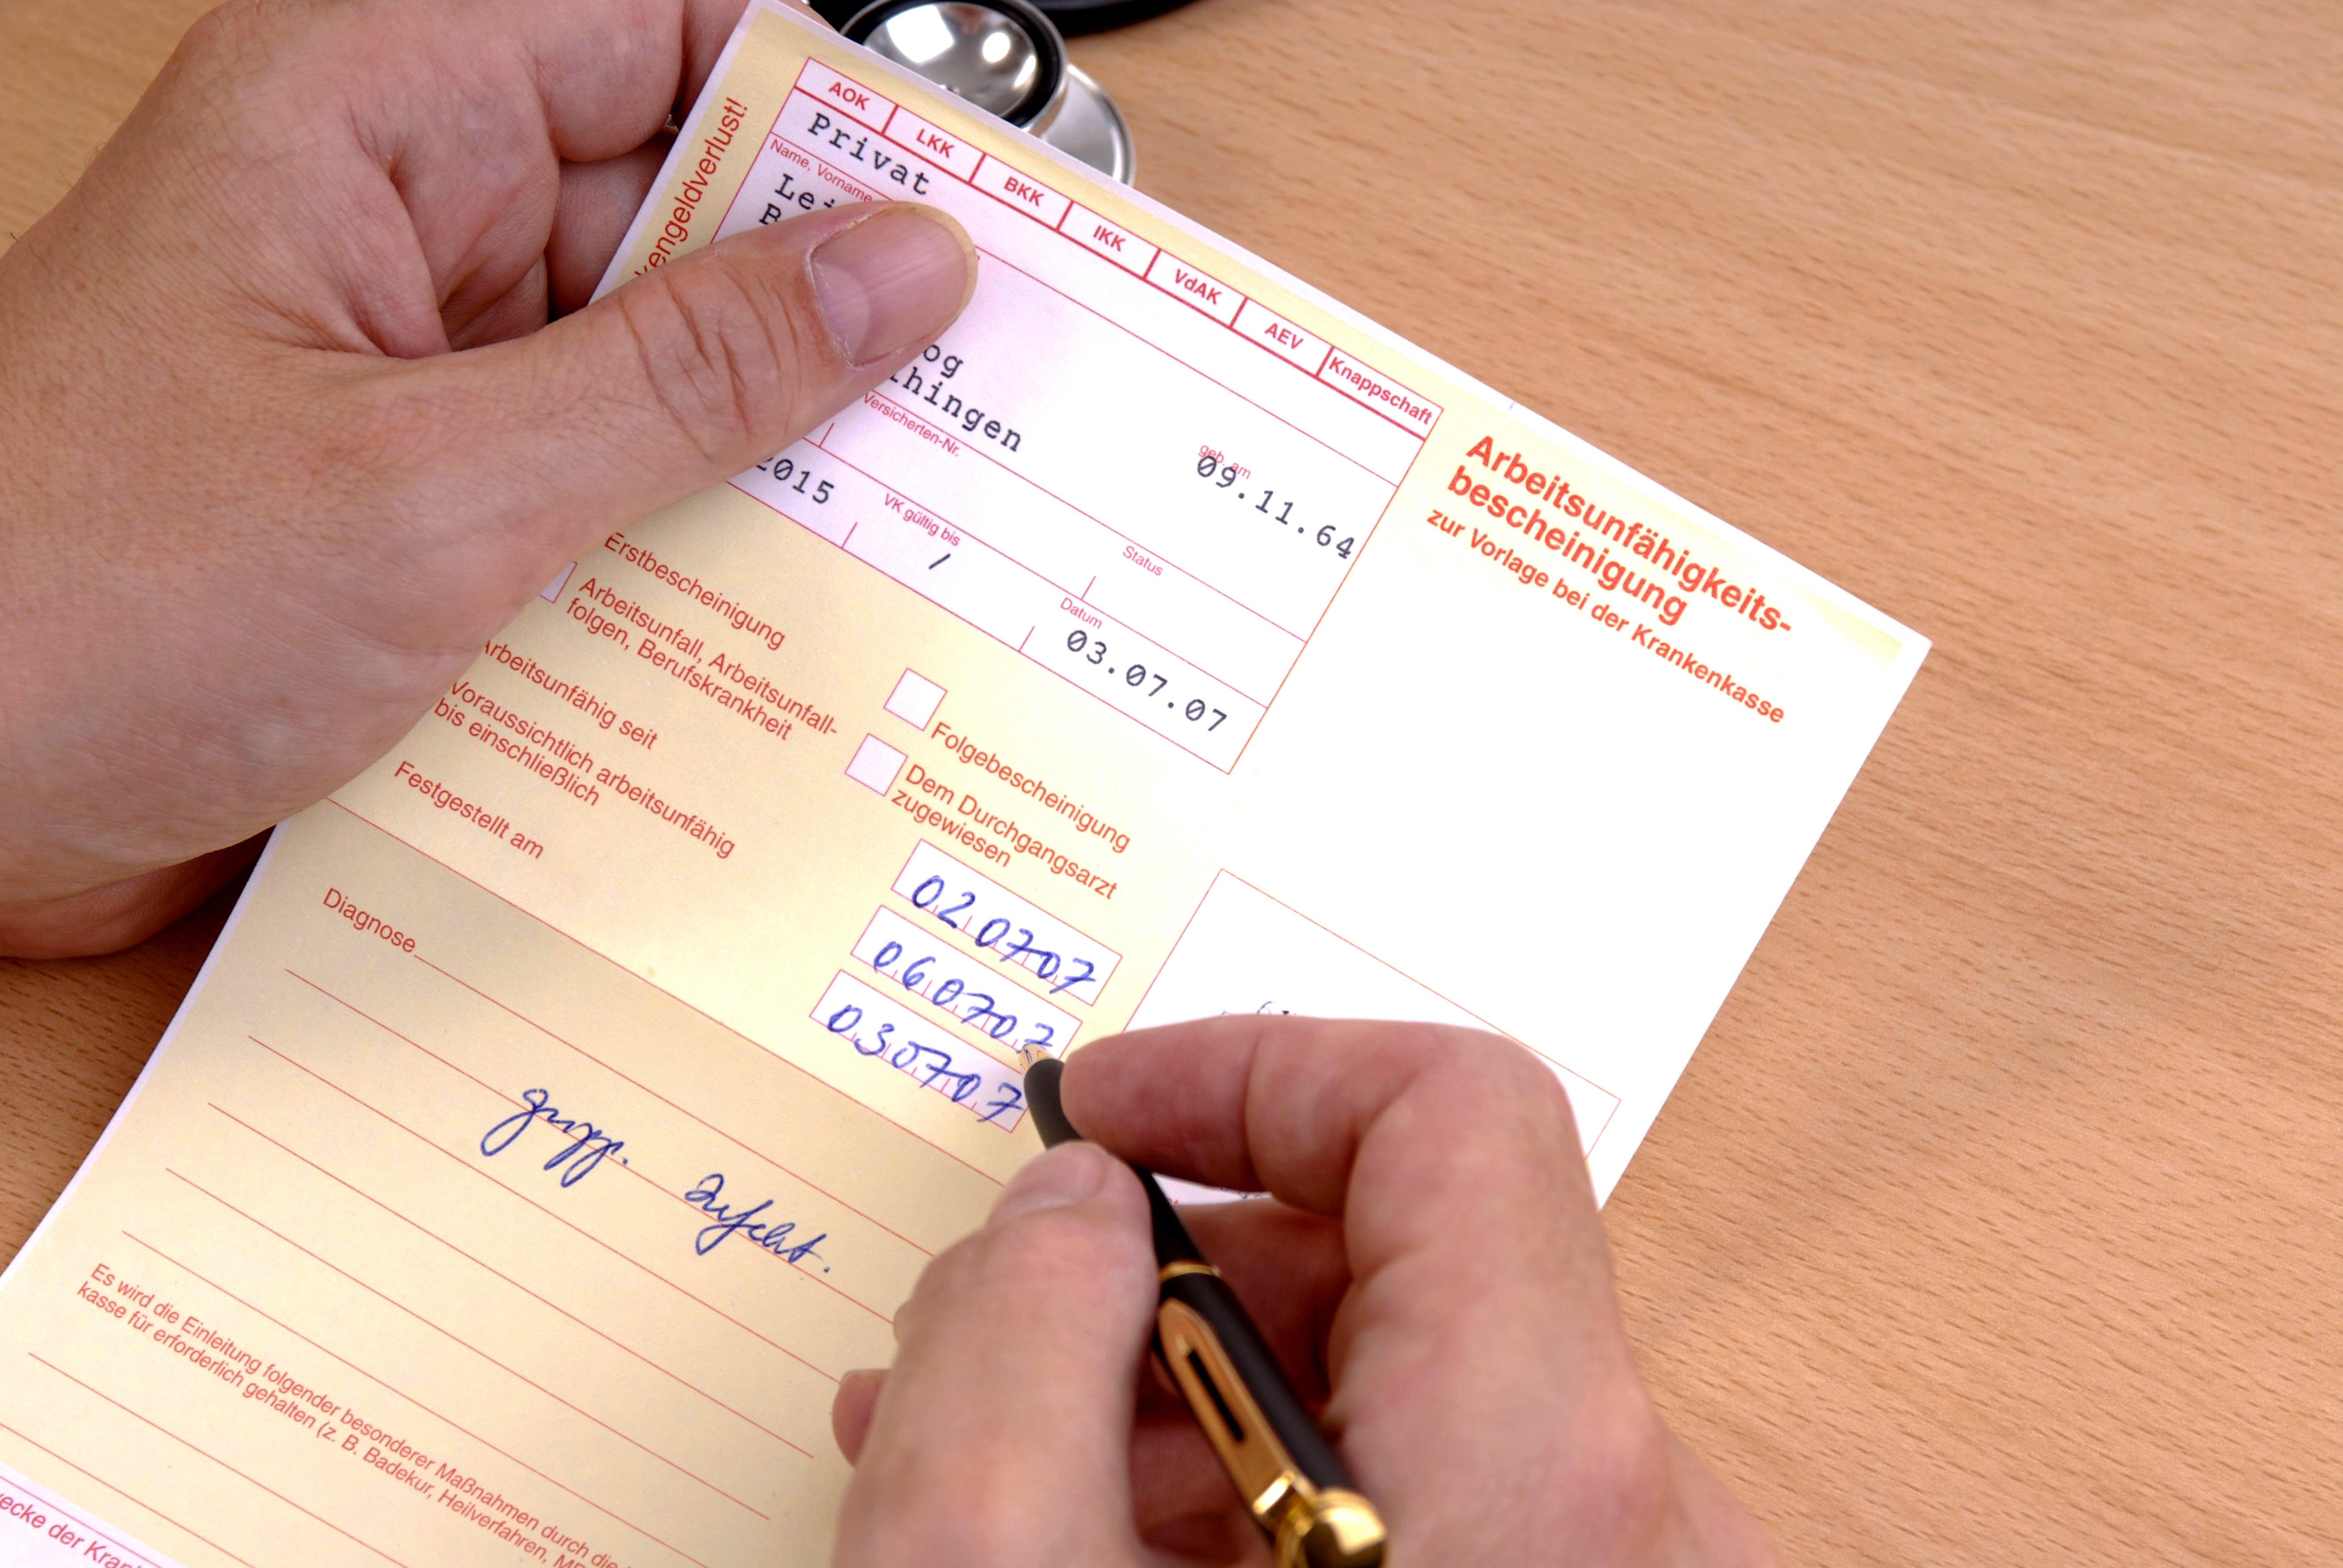 AOK LKK BKK IKK VdAK AEV Knappschaft
Privat
Name, Vorname
geb. am
09.11.64
Versicherten-Nr.
Status
2015
VK gültig bis
/
Datum
03.07.07
Arbeitsunfähigkeits-
bescheinigung
zur Vorlage bei der Krankenkasse
Erstbescheinigung
Folgebescheinigung
Arbeitsunfall, Arbeitsunfall-
folgen, Berufskrankheit
Dem Durchgangsarzt
zugewiesen
Arbeitsunfähig seit
020707
Voraussichtlich arbeitsunfähig
bis einschließlich
060707
Festgestellt am
030707
Diagnose
gripp.
Es wird die Einleitung folgender besonderer Maßnahmen durch die
kasse für erforderlich gehalten (z. B. Badekur, Heilverfahren,
der